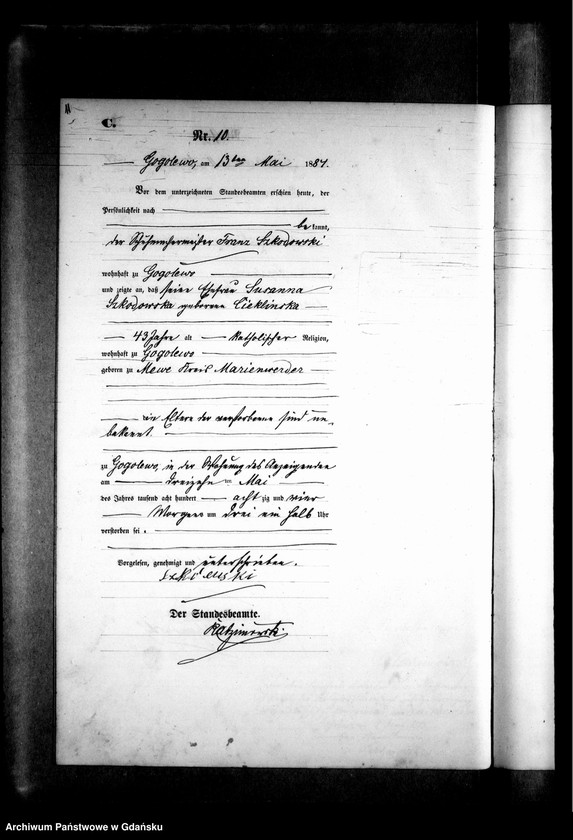 C.
Nr. 10.
Gogolewo, am 13ten Mai 1884.
Vor dem unterzeichneten Standesbeamten erschien heute, der
Persönlichkeit nach
bekannt,
der Franz Szkodowski
wohnhaft zu Gogolewo
und zeigte an, daß seine Ehefrau Susanna
Szkodowska geborene Cieklinska
43 Jahre alt katholischer Religion,
wohnhaft zu Gogolewo
geboren zu Mewe Kreis Marienwerder
die Eltern der verstorbene sind un-
bekannt.
zu Gogolewo, in der Wohnung des Anzeigenden
am dreizehn ten Mai
des Jahres tausend acht hundert achtzig und vier
Morgens um drei ein halb Uhr
verstorben sei.
Vorgelesen, genehmigt und unterschrieben.
Der Standesbeamte.
Archiwum Państwowe w Gdańsku